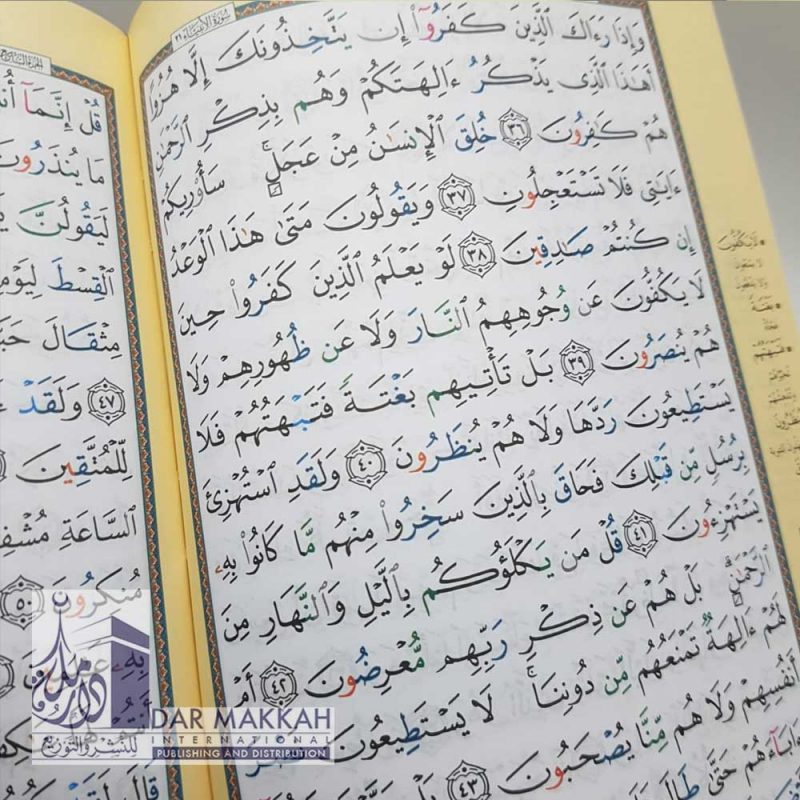 سورة الأنبياء ٢١
وَإِذَا رَءَاكَ ٱلَّذِينَ كَفَرُوٓا۟ إِن يَتَّخِذُونَكَ إِلَّا هُزُوًا
أَهَٰذَا ٱلَّذِى يَذْكُرُ ءَالِهَتَكُمْ وَهُم بِذِكْرِ ٱلرَّحْمَٰنِ
هُمْ كَٰفِرُونَ ٣٦ خُلِقَ ٱلْإِنسَٰنُ مِنْ عَجَلٍۢ ۚ سَأُو۟رِيكُمْ
ءَايَٰتِى فَلَا تَسْتَعْجِلُونِ ٣٧ وَيَقُولُونَ مَتَىٰ هَٰذَا ٱلْوَعْدُ
إِن كُنتُمْ صَٰدِقِينَ ٣٨ لَوْ يَعْلَمُ ٱلَّذِينَ كَفَرُوا۟ حِينَ
لَا يَكُفُّونَ عَن وُجُوهِهِمُ ٱلنَّارَ وَلَا عَن ظُهُورِهِمْ وَلَا
هُمْ يُنصَرُونَ ٣٩ بَلْ تَأْتِيهِم بَغْتَةًۭ فَتَبْهَتُهُمْ فَلَا
يَسْتَطِيعُونَ رَدَّهَا وَلَا هُمْ يُنظَرُونَ ٤٠ وَلَقَدِ ٱسْتُهْزِئَ
بِرُسُلٍۢ مِّن قَبْلِكَ فَحَاقَ بِٱلَّذِينَ سَخِرُوا۟ مِنْهُم مَّا كَانُوا۟ بِهِۦ
يَسْتَهْزِءُونَ ٤١ قُلْ مَن يَكْلَؤُكُم بِٱلَّيْلِ وَٱلنَّهَارِ مِنَ
ٱلرَّحْمَٰنِ ۗ بَلْ هُمْ عَن ذِكْرِ رَبِّهِم مُّعْرِضُونَ ٤٢ أَمْ
لَهُمْ ءَالِهَةٌۭ تَمْنَعُهُم مِّن دُونِنَا ۚ لَا يَسْتَطِيعُونَ نَصْرَ
أَنفُسِهِمْ وَلَا هُم مِّنَّا يُصْحَبُونَ ٤٣ بَلْ
وَءَابَآءَهُمْ حَتَّىٰ طَالَ
قُلْ إِنَّمَآ
مَا يُنذَرُونَ
لَيَقُولُنَّ
ٱلْقِسْطَ لِيَوْمِ
مِثْقَالَ
٤٧ وَلَقَدْ
لِّلْمُتَّقِينَ
ٱلسَّاعَةِ
مُنكِرُونَ ٥٠
بِهِۦ
قَالَ لَقَدْ
دار مكة
للنشر والتوزيع
DAR MAKKAH
INTERNATIONAL
PUBLISHING AND DISTRIBUTION